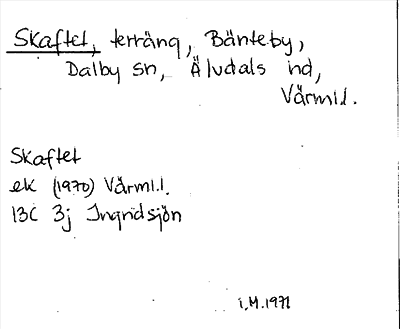 Skaftet, terräng, Bänteby,
Dalby sn, Älvdals hd,
Värml.
Skaftet
ek (1970) Värml.
13C 3j Ingridsjön
I.M. 1971